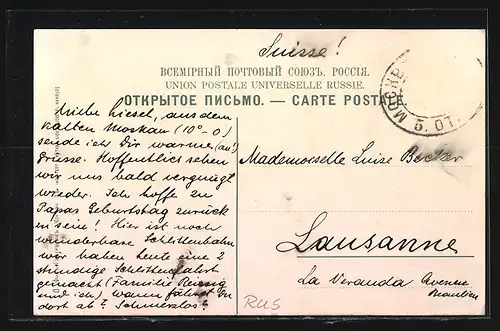 Suisse!
ВСЕМІРНЫЙ ПОЧТОВЫЙ СОЮЗЪ. РОССІЯ.
UNION POSTALE UNIVERSELLE RUSSIE.
ОТКРЫТОЕ ПИСЬМО. — CARTE POSTALE.
МОСКВ
5.01.
Liebe Liesel, aus dem
kalten Moskau (10°-0)
sende ich Dir warme
Grüsse. Hoffentlich sehen
wir uns bald vergnügt
wieder. Ich hoffe zu
Papas Geburtstag zurück
zu sein! Hier ist noch
wunderbare Schlittenbahn
wir haben heute eine 2
stündige Schlittenfahrt
gemacht (Familie
und ich) wann fährst Du
dort ab? Schmerzlos?
Mademoiselle Luise Becker
Lausanne
La Veranda Avenue
Beaulieu
RUS